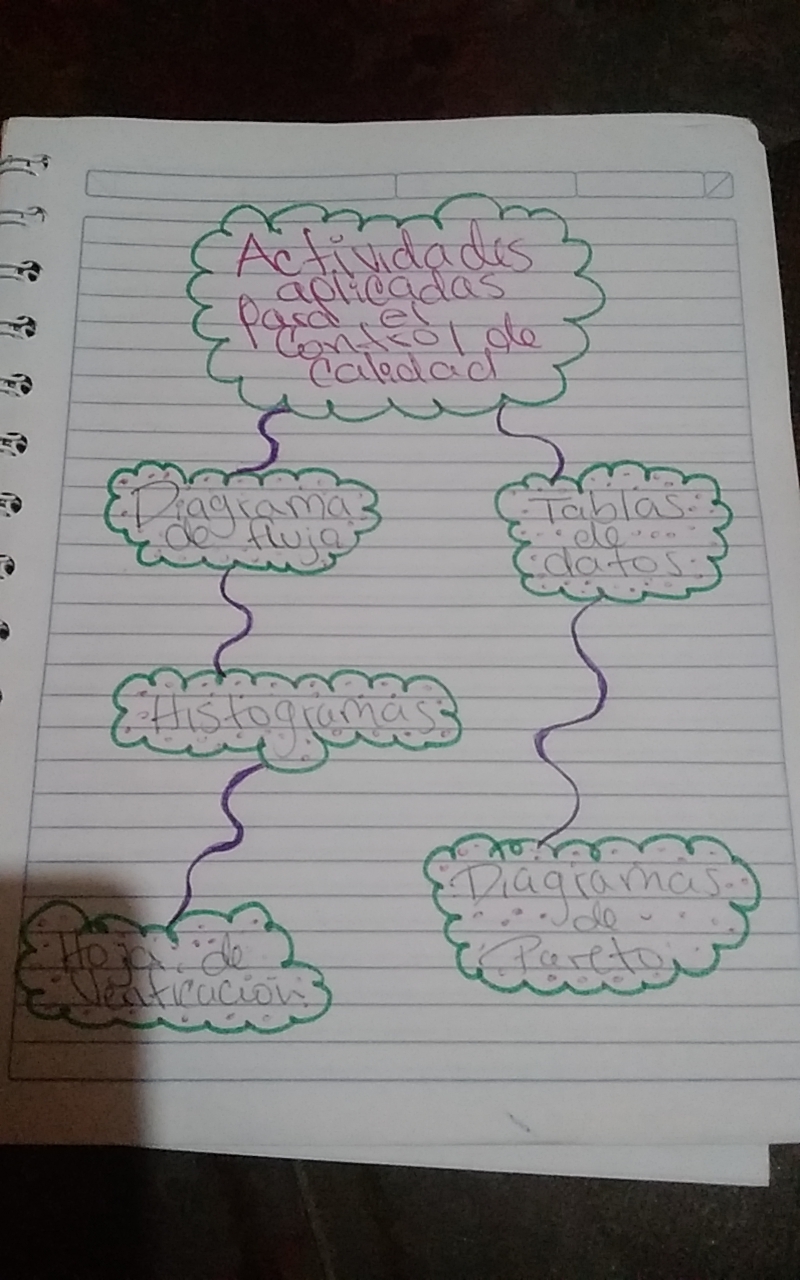 Actividades
aplicadas
para el
Control de
Calidad
Diagrama
de flujo
Tablas
de
datos
Histogramas
Diagramas
de
Pareto
Hoja de
Verificación